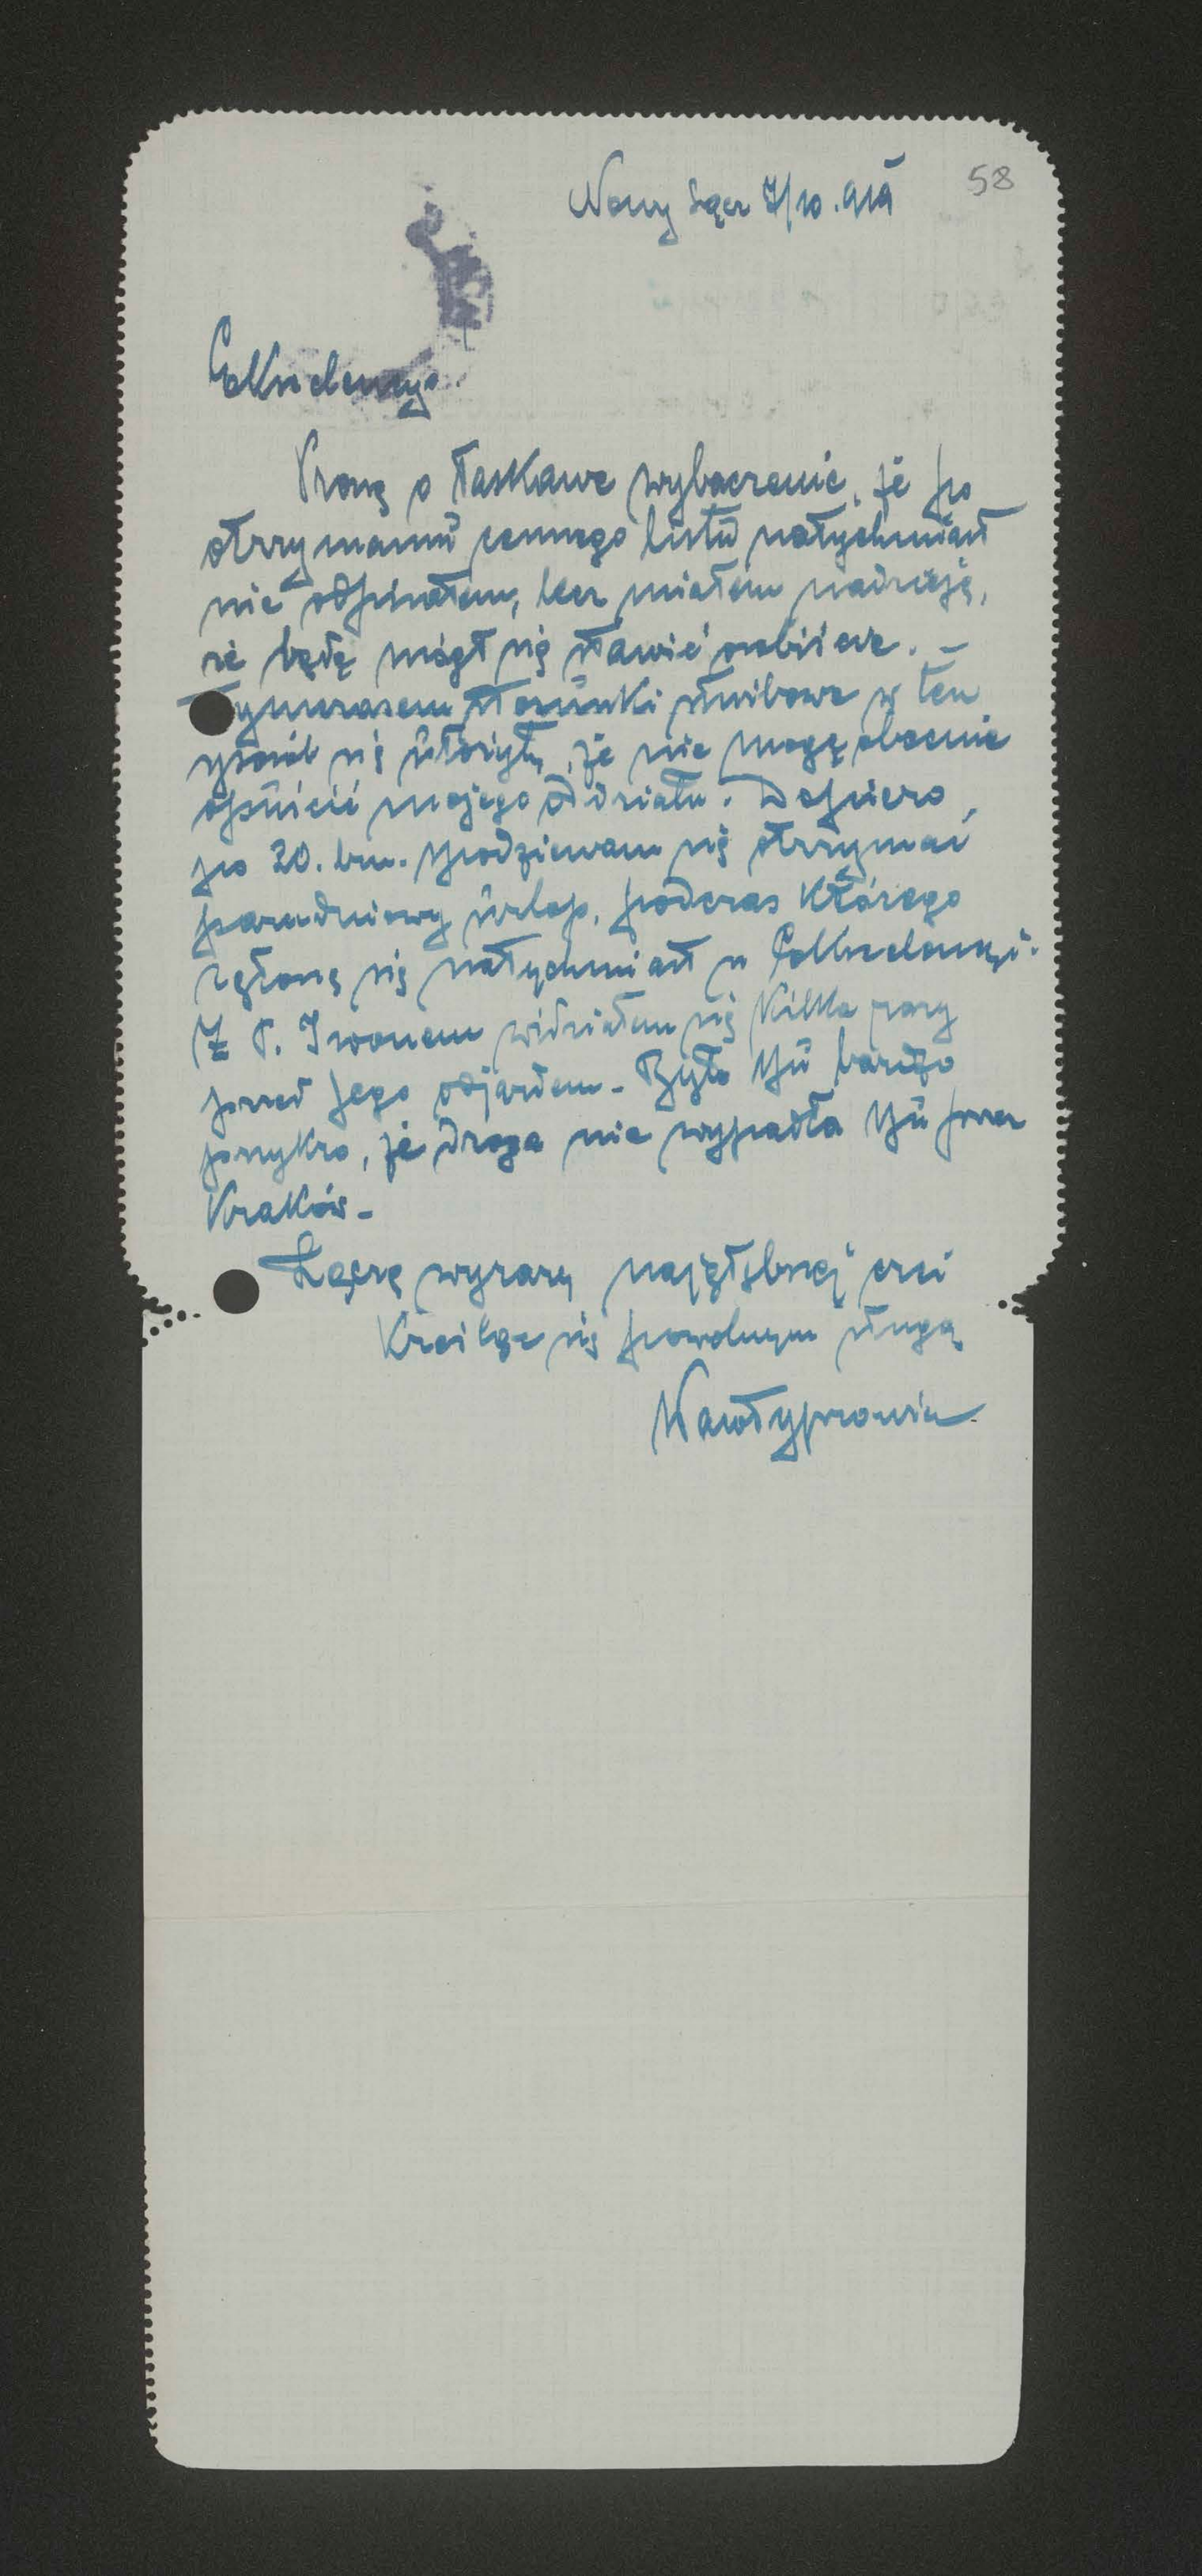 58
Nowy Sącz 7/10. 919
Ekscelencyo
Proszę o łaskawe wybaczenie, że po
otrzymaniu cennego listu natychmiast
nie odpisałem, lecz miałem nadzieję,
że będę mógł się stawić osobiście. –
Tymczasem stosunki służbowe w ten
sposób się ułożyły, że nie mogę obecnie
opuścić mojego oddziału. Dopiero
po 20. bm. spodziewam się otrzymać
parudniowy urlop, podczas którego
zgłoszę się natychmiast u Ekscelencyi.
Z P. Iwonem widziałem się kilka razy
przed Jego odjazdem – Było Mu bardzo
przykro, że droga nie wypadła Mu przez
Kraków –
Łączę wyrazy najgłębszej czci
Kreśląc się powolnym sługą